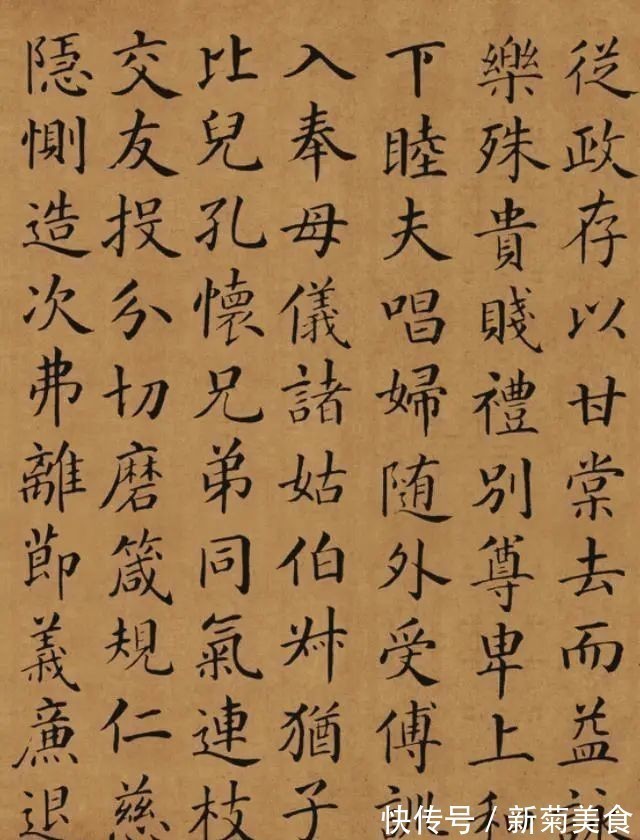 從政存以甘棠去而益
樂殊貴賤禮別尊卑上和
下睦夫唱婦随外受傅訓
入奉母儀諸姑伯叔猶子
比兒孔懷兄弟同氣連枝
交友投分切磨箴規仁慈
隱惻造次弗離節義廉退
快传号 / 新菊美食